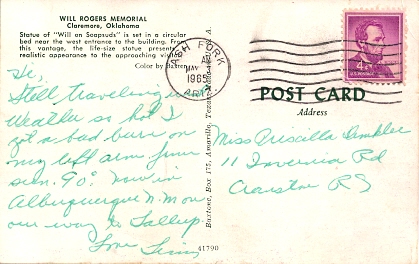 WILL ROGERS MEMORIAL
Claremore, Oklahoma
Statue of "Will on Soapsuds" is set in a circular
bed near the west entrance to the building. From
this vantage, the life-size statue presents
realistic appearance to the approaching visitor.
Color by Baxter
ASH FORK
MAY
1965
ARIZ.
4¢
U.S. POSTAGE
POST CARD
Address
Hi,
Still traveling
Weather so hot I
got a bad burn on
my left arm from
sun. 90° now in
Albuquerque N.M on
our way to Gallup
Love
Miss Priscilla
11 Rd
Cranston RI
Baxtone, Box 175, Amarillo, Texas
41790